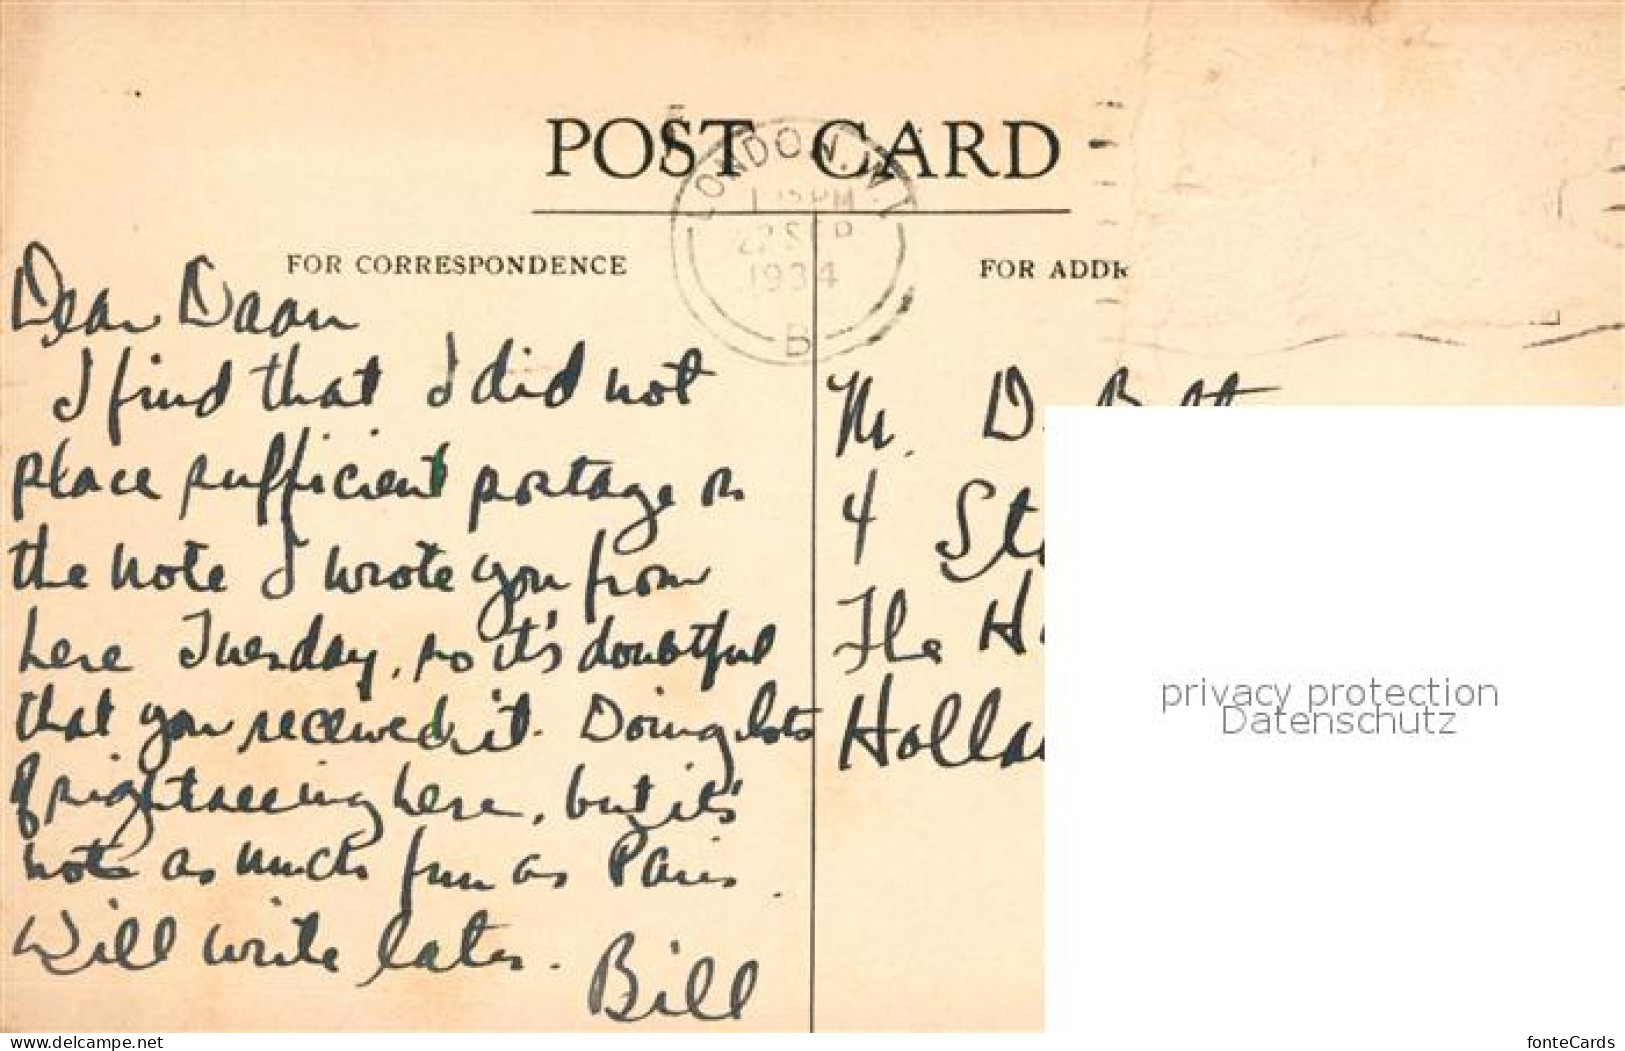 POST CARD
LONDON. W.1
PM
22 SEP
1934
B
FOR CORRESPONDENCE
FOR ADDR
Dear Daan
I find that I did not
place sufficient postage on
the note I wrote you from
here Tuesday, so it's doubtful
that you received it. Doing lots
of sightseeing here, but it's
not as much fun as Paris.
Will write later.
Bill
M. D.
4 St
The H
Holla
privacy protection
Datenschutz
www.delcampe.net
fonteCards